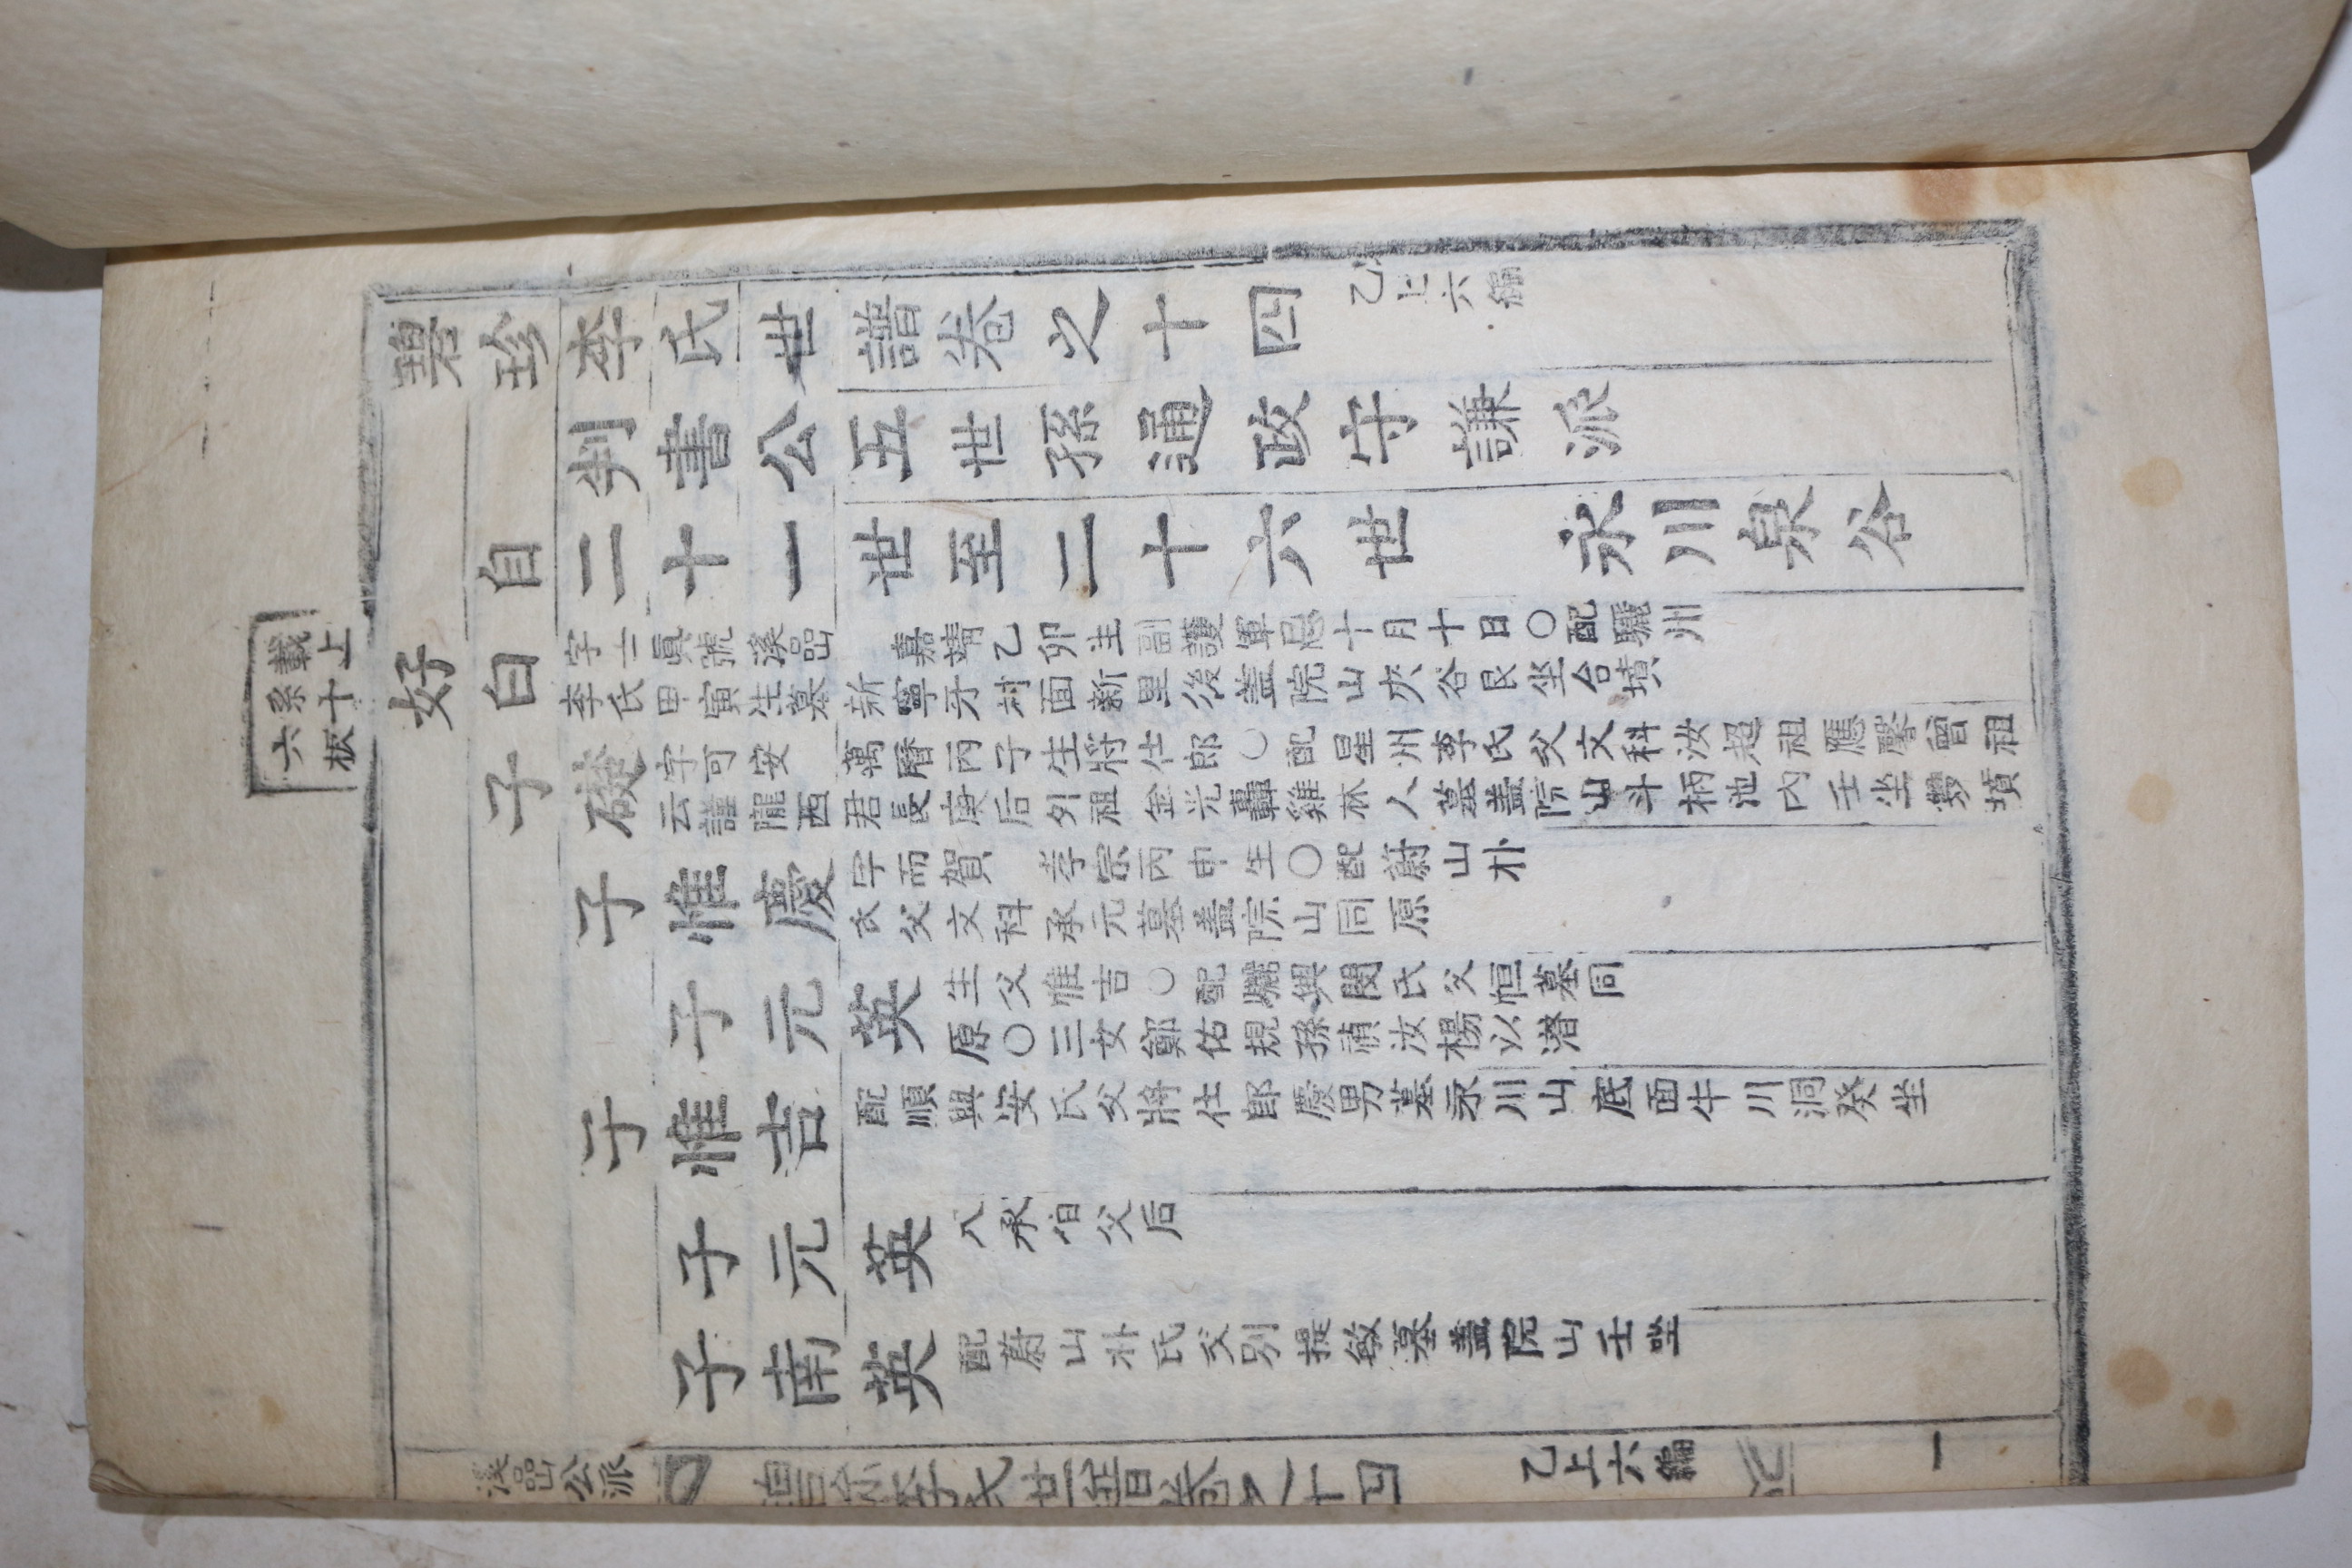 碧珍李氏世譜卷之十四 乙上六編
判書公五世孫通政守謙派
自二十一世至二十六世 永川泉谷
載上
系十
六板
好白
字士眞號溪嵒 嘉靖乙卯生副護軍忌十月十日○配驪州
李氏甲寅生墓新寧牙村面新里後盖院山夾谷艮坐合墳
子礎
字可安 萬曆丙子生將仕郎○配星州李氏父文科汝超祖應馨曾祖
云謹隴西君長庚后外祖金光轟雞林人墓盖院山斗柄池內壬坐雙墳
子惟慶
字而賀 孝宗丙申生○配蔚山朴
氏父文科承元墓盖院山同原
子元英
生父惟吉○配驪興閔氏父恒墓同
原○三女鄭佑規孫禎汝楊以潛
子惟吉
配順興安氏父將仕郎慶男墓永川山底面牛川洞癸坐
子元英
入承伯父后
子南英
配蔚山朴氏父別提敏墓盖院山壬坐
溪嵒公派 碧珍李氏世譜卷之十四 乙上六編 一